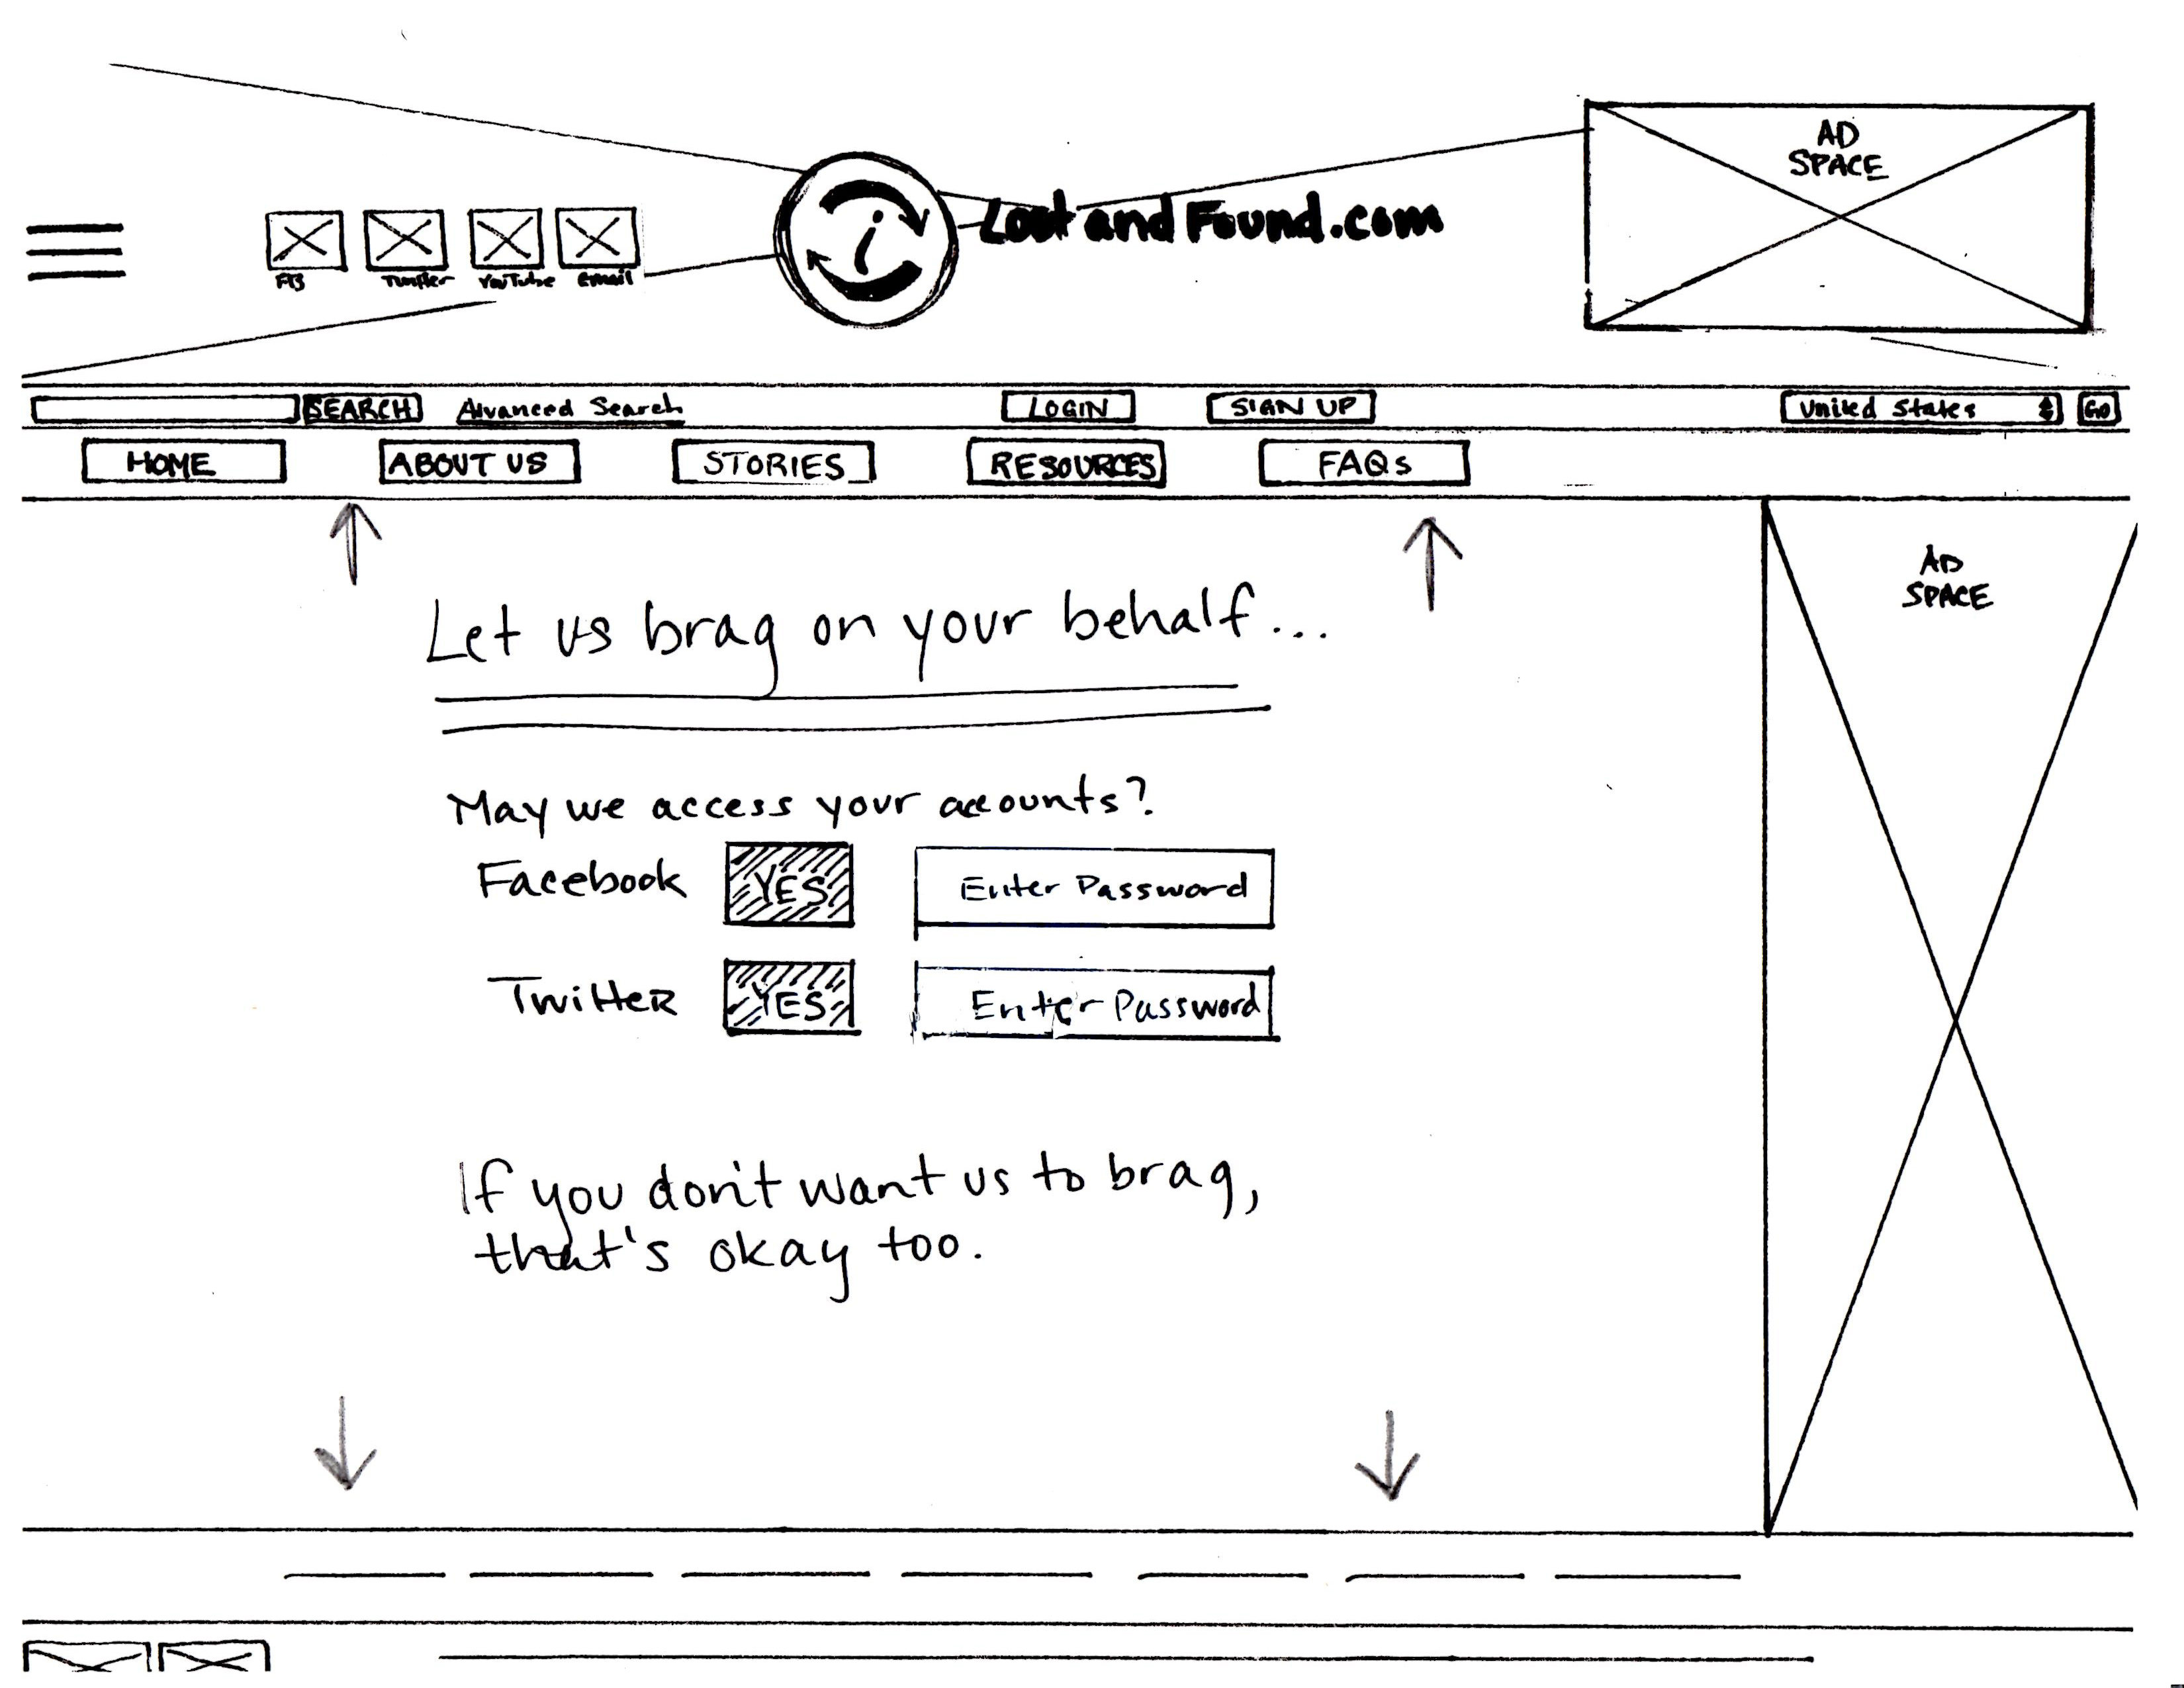 AD
SPACE
i LostandFound.com
FB Twitter YouTube Email
SEARCH Advanced Search LOGIN SIGN UP United States GO
HOME ABOUT US STORIES RESOURCES FAQs
AD
SPACE
Let us brag on your behalf...
May we access your accounts?
Facebook YES Enter Password
Twitter YES Enter Password
If you don't want us to brag,
that's okay too.